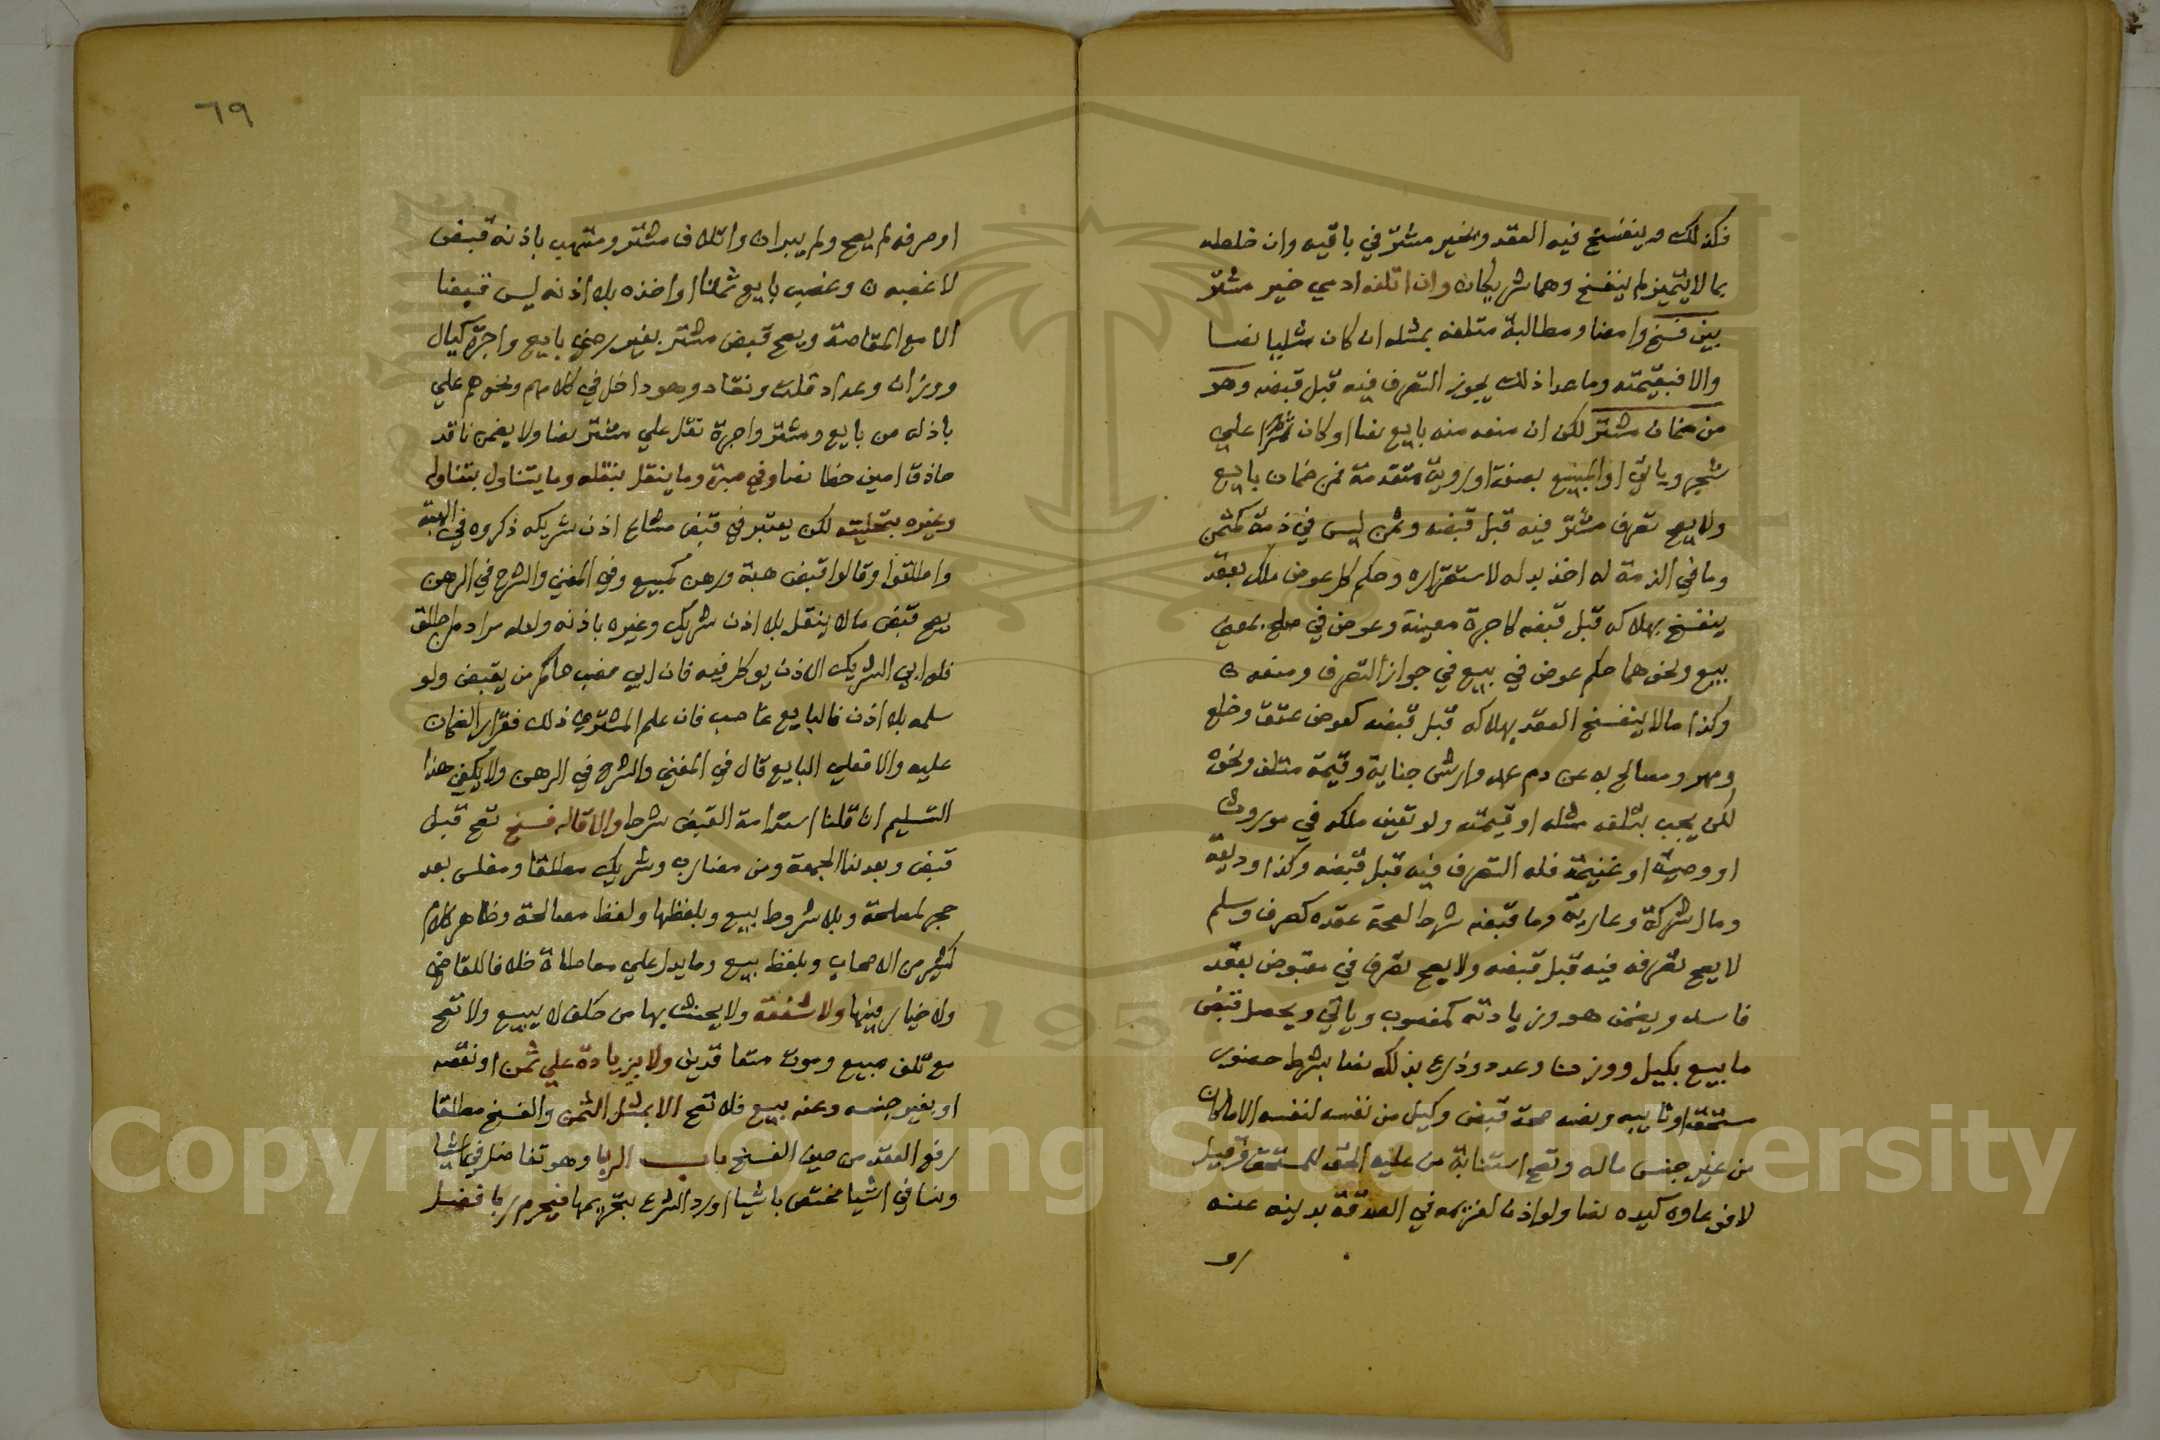 فكذلك وينفسخ فيه العقد ويخير مشتر في باقيه وان خلطه
بما لا يتميز لم ينفسخ وهما شريكان وان اتلفه ادمي خير مشتر
بين فسخ وامضا ومطالبة متلفه بمثله ان كان مثليا نصا
والا فبقيمته وما عدا ذلك يجوز التصرف فيه قبل قبضه وهو
من ضمان مشتر لكن ان منعه منه بايع نصا او كان ثمرا علي
شجر وياتي او المبيع بصفة او روية متقدمة فمن ضمان بايع
ولا يصح تصرف مشتر فيه قبل قبضه وثمن ليس في ذمة كمثمن
وما في الذمة له اخذ بدله لاستقراره وحكم كل عوض ملك بعقد
ينفسخ بهلاكه قبل قبضه كاجرة معينة وعوض في صلح بمعني
بيع ونحوهما حكم عوض في بيع في جواز التصرف ومنعه
وكذا ما لا ينفسخ العقد بهلاكه قبل قبضه كعوض عتق وخلع
ومهر ومصالح به عن دم عمد وارش جناية وقيمة متلف ونحوه
لكن يجب بتلفه مثله او قيمته ولو تعين ملكه في موروث
او وصية او غنيمة فله التصرف فيه قبل قبضه وكذا وديعة
ومال شركة وعارية وما قبضه شرط لصحة عقده كصرف وسلم
لا يصح تصرفه فيه قبل قبضه ولا يصح تصرف في مقبوض بعقد
فاسد ويضمن هو وزيادته كمغصوب وياتي ويحصل قبض
ما بيع بكيل ووزن وعدد وذرع بذلك نصا بشرط حضور
مستحق او نايبه ونصه صحة قبض وكيل من نفسه لنفسه الا ما كان
من غير جنس ماله وتصح استنابة من عليه الحق للمستحق
لا في كيده نصا ولو اذن لغريمه في الصدقة بدينه عنه
او
٦٩
او صرفه لم يصح ولم يبرا واتلاف مشتر ومتهب باذنه قبض
لا غصبه وغصب بايع ثمنا او اخذه بلا اذنه ليس قبضا
الا مع المقاصة ويصح قبض مشتر بغير رضي بايع واجرة كيال
ووزان وعداد ونقاد وهو داخل في كلامهم ونحوهم علي
باذل من بايع ومشتر واجرة نقل علي مشتر نصا ولا يضمن ناقد
حاذق امين خطا نصا وفي صبرة وما ينقل بنقله وما يتناول بتناوله
وغيره بتخليته لكن يعتبر في قبض مشاع اذن شريكه ذكروه في الهبة
واطلقوا وقالوا قبض هبة ورهن كمبيع وفي المغني والشرح في الرهن
يصح قبض ما لا ينقل بلا اذن شريك وغيره باذنه ولعله مراد من اطلق
فلو ابي الشريك الاذن يوكل فيه فان ابي نصب حاكم من يقبض ولو
سلمه بلا اذن فالبايع غاصب فان علم المشتري ذلك فقرار الضمان
عليه والا فعلي البايع قال في المغني والشرح في الرهن ولا يكفي هذا
التسليم ان قلنا استدامة القبض شرط والاقالة فسخ تصح قبل
قبض وبعد ندا الجمعة ومن مضارب وشريك مطلقا ومفلس بعد
حجر لمصلحة وبلا شروط بيع وبلفظها ولفظ مصالحة وظاهر كلام
كثير من الاصحاب وبلفظ بيع وما يدل علي معاطاة خلافا للقاضي
ولا خيار فيها ولا شفعة ولا يحنث بها من حلف لا يبيع ولا تصح
مع تلف مبيع وموت متعاقدين ولا بزيادة علي ثمن او نقصه
او بغير جنسه وعنه بيع فلا تصح الا بمثل الثمن والفسخ مطلقا
رفع العقد من حين الفسخ باب الربا وهو تفاضل في اشيا
ونسا في اشيا مختص باشيا ورد الشرع بتحريمها فيحرم ربا فضل